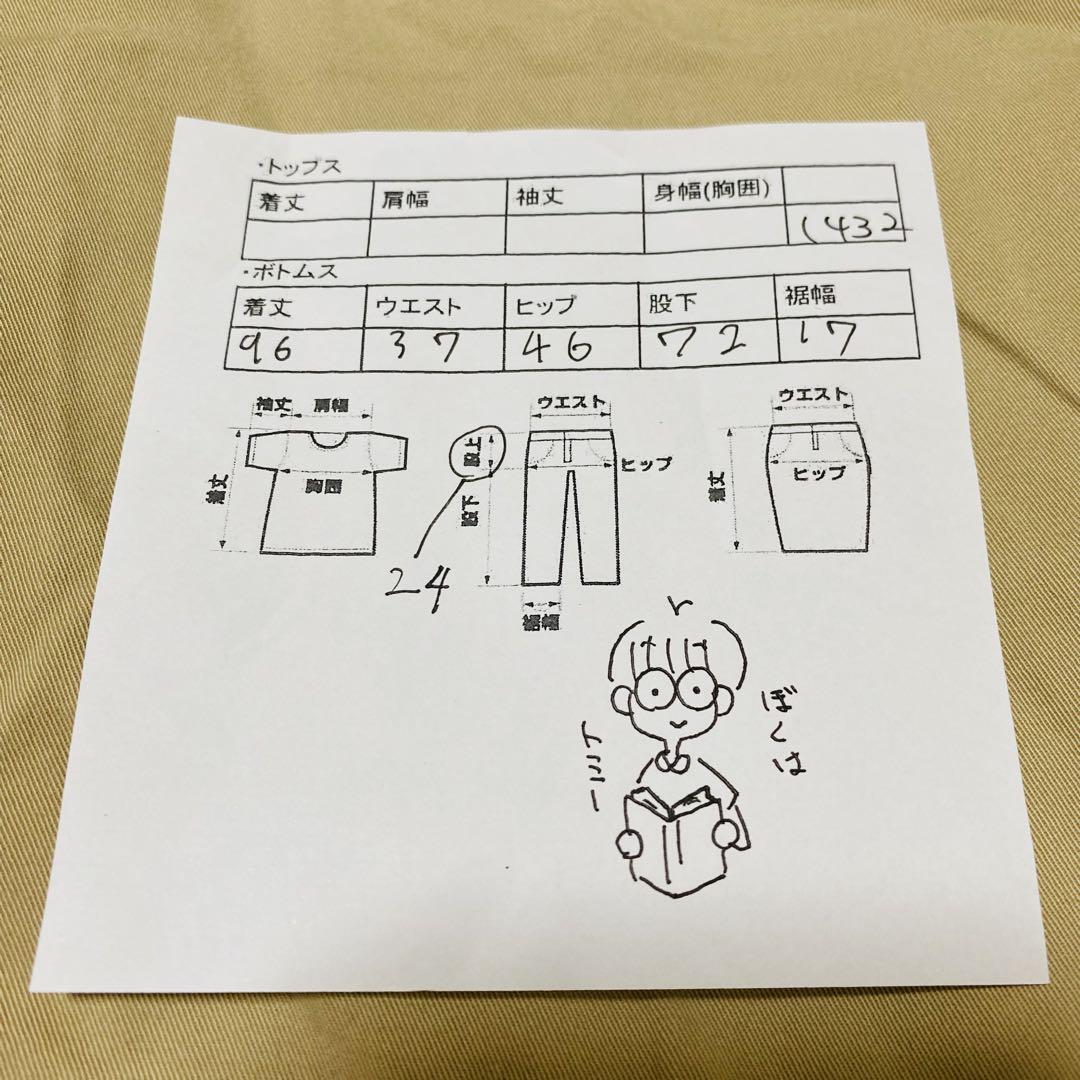 ・トップス
着丈 肩幅 袖丈 身幅(胸囲)
1432
・ボトムス
着丈 ウエスト ヒップ 股下 裾幅
96 37 46 72 17
袖丈 肩幅
着丈
胸囲
ウエスト
股上
ヒップ
股下
裾幅
24
ウエスト
ヒップ
着丈
ぼくは
トミー